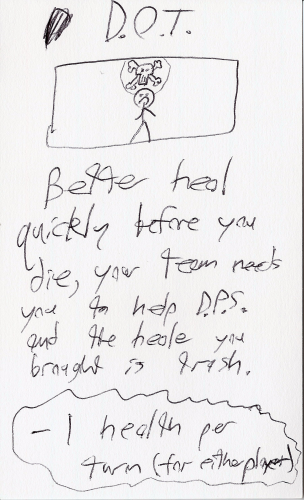 D.O.T.
Better heal
quickly before you
die, your team needs
you to help D.P.S.
and the heale you
brought is trash.
-1 health per
turn (for either player)